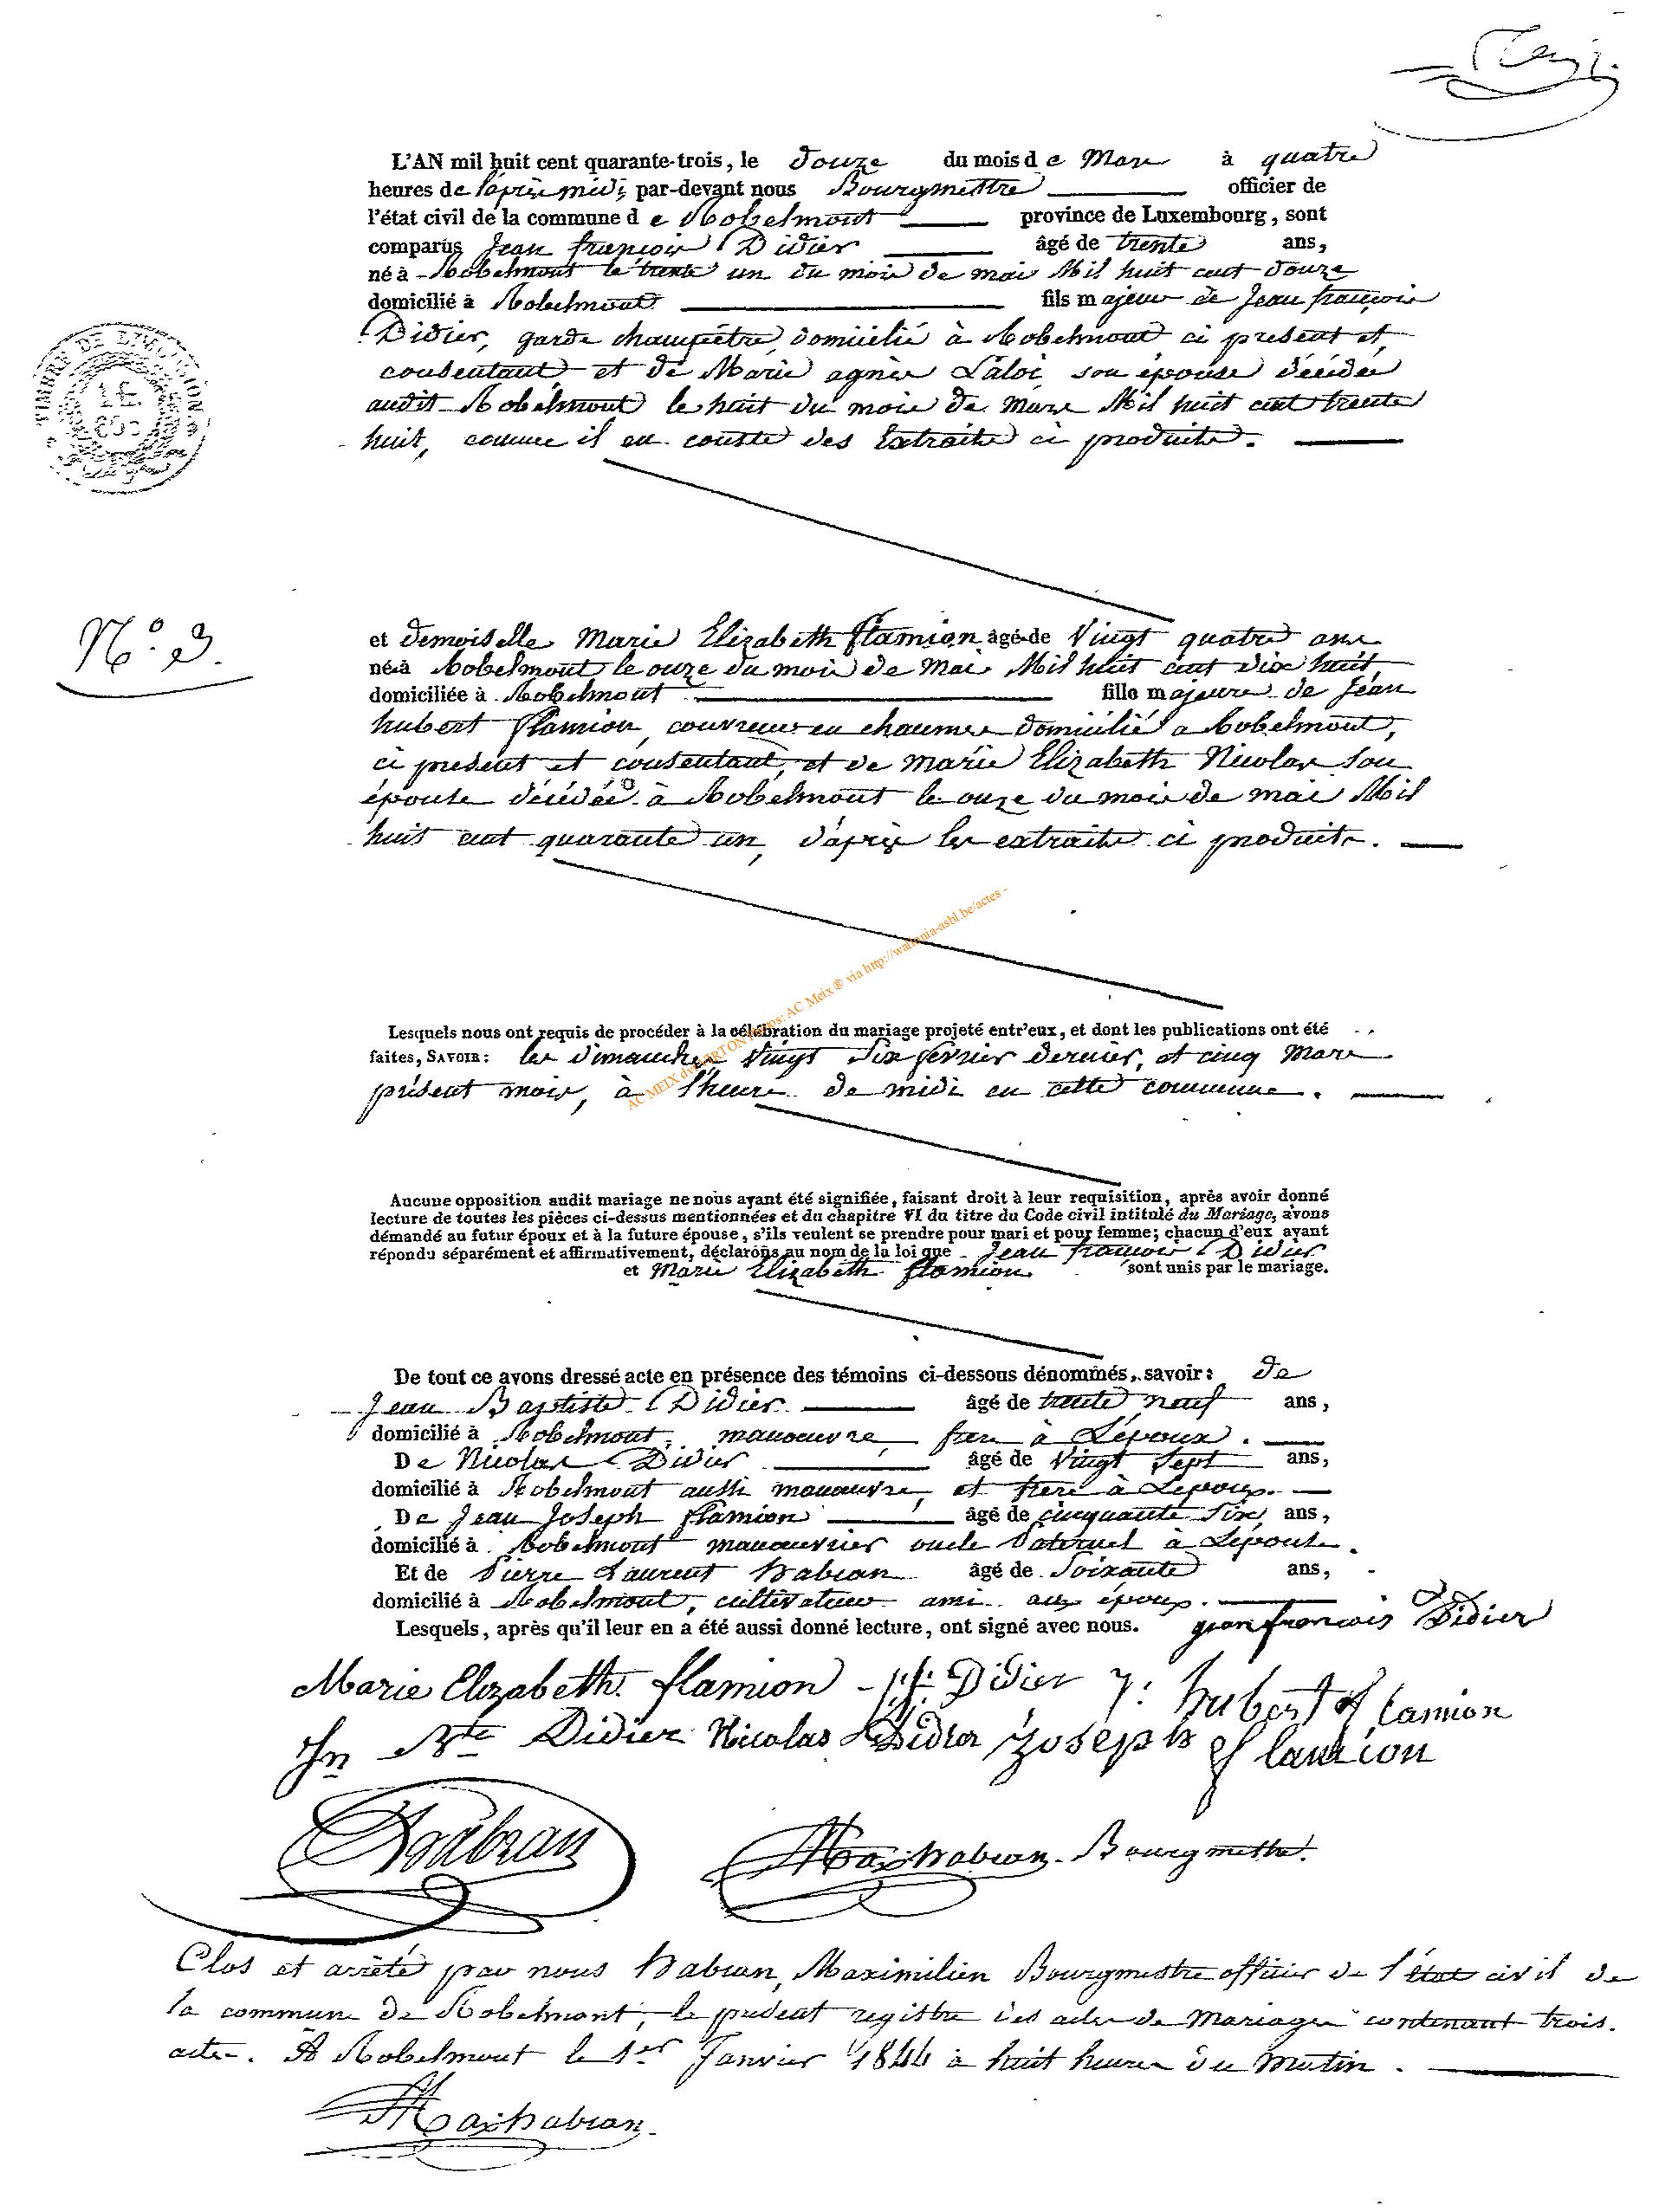 L'AN mil huit cent quarante-trois, le douze du mois de Mars à quatre
heures de l'après midi, par-devant nous Bourgmestre officier de
l'état civil de la commune de Robelmont province de Luxembourg, sont
comparus Jean françois Didier âgé de trente ans,
né à Robelmont le trente un du mois de mai Mil huit cent douze
domicilié à Robelmont fils majeur de Jean françois
Didier, garde champêtre, domicilié à Robelmont ci présent et
consentant, et de Marie agnès Laloi, son épouse décédée
audit Robelmont le huit du mois de Mars Mil huit cent trente
huit, comme il en conste des Extraits ci produits.
N.º 3.
et demoiselle Marie Elizabeth flamion âgé de Vingt quatre ans
né à Robelmont le onze du mois de Mai Mil huit cent dix huit,
domiciliée à Robelmont fille majeure de Jean
hubert flamion, couvreur en chaumes domicilié a Robelmont,
ci présent et consentant, et de marie Elizabeth Nicolas son
épouse décédée à Robelmont le onze du mois de mai Mil
huit cent quarante un, d'après les extraits ci produits.
Lesquels nous ont requis de procéder à la célébration du mariage projeté entr'eux, et dont les publications ont été
faites, SAVOIR: les dimanches Vingt Six fevrier dernier, et cinq Mars
présent mois, à l'heure de midi en cette commune.
AC MEIX dvt VIRTON Repros: AC Meix ® via http://wallonia-asbl.be/actes -
Aucune opposition audit mariage ne nous ayant été signifiée, faisant droit à leur requisition, après avoir donné
lecture de toutes les pièces ci-dessus mentionnées et du chapitre VI du titre du Code civil intitulé du Mariage, avons
démandé au futur époux et à la future épouse, s'ils veulent se prendre pour mari et pour femme; chacun d'eux ayant
répondu séparément et affirmativement, déclarons au nom de la loi que Jean françois Didier
et Marie Elizabeth flamion sont unis par le mariage.
De tout ce avons dressé acte en présence des témoins ci-dessous dénommés, savoir: de
Jean Baptiste Didier âgé de trente neuf ans,
domicilié à Robelmont, manoeuvre, frere à L'époux.
De Nicolas Didier âgé de Vingt Sept ans,
domicilié à Robelmont aussi manoeuvre, et frere à Lepoux.
De Jean Joseph flamion âgé de cinquante Six ans,
domicilié à Robelmont manoeuvrier oncle Paternel à Lépouse.
Et de Pierre Laurent habran âgé de Soixante ans,
domicilié à Robelmont, cultivateur ami aux époux.
Lesquels, après qu'il leur en a été aussi donné lecture, ont signé avec nous. jean francois Didier
Marie Elizabeth flamion j.f. Didier J: hubert flamion
Jn Bte Didier Nicolas Didier Joseph flamion
habran Max habran Bourgmestre.
Clos et arrêté par nous habran, Maximilien Bourgmestre officier de l'état civil de
la commune de Robelmont, le présent registre des actes de Mariages contenant trois
actes. A Robelmont le 1er Janvier 1844 à huit heures du Matin.
Max habran